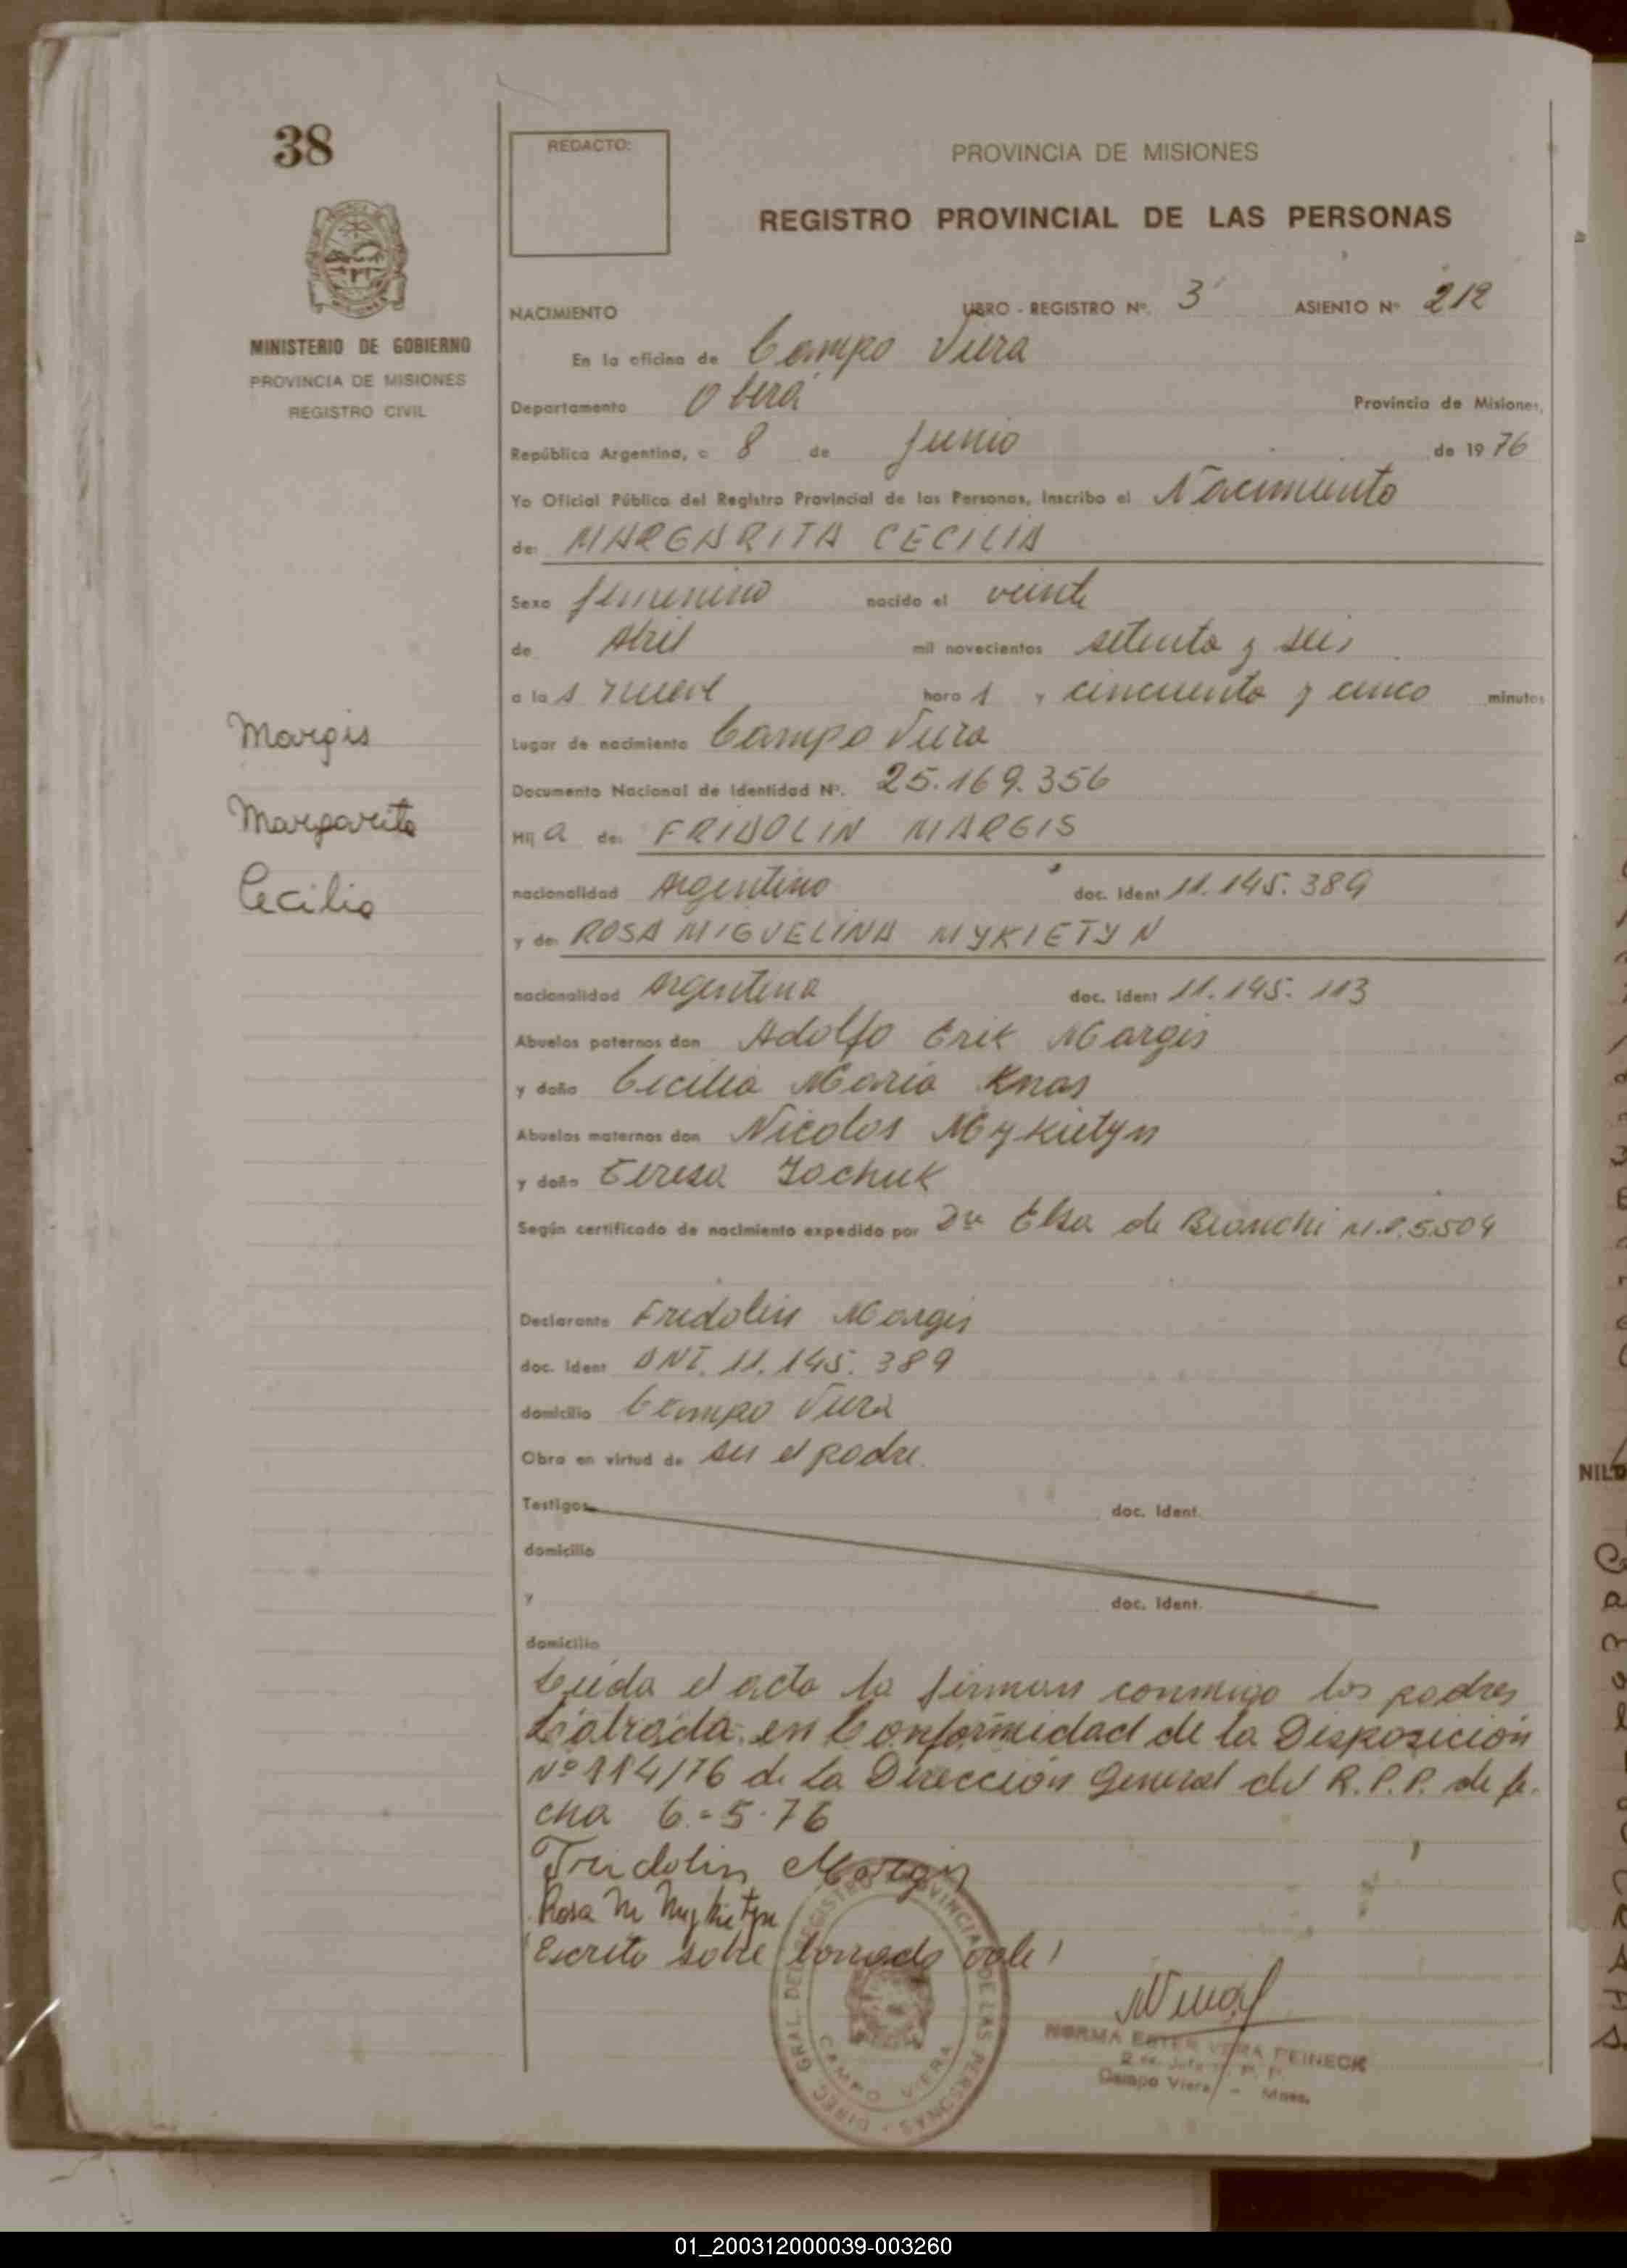 38
MINISTERIO DE GOBIERNO
PROVINCIA DE MISIONES
REGISTRO CIVIL
Margis
Margarita
Cecilia
REDACTO:
PROVINCIA DE MISIONES
REGISTRO PROVINCIAL DE LAS PERSONAS
NACIMIENTO LIBRO - REGISTRO Nº. 3 ASIENTO Nº 212
En la oficina de Campo Viera
Departamento Oberá Provincia de Misiones,
República Argentina, a 8 de Junio de 1976
Yo Oficial Público del Registro Provincial de las Personas, inscribo el Nacimiento
de: MARGARITA CECILIA
Sexo femenino nacido el veinte
de Abril mil novecientos setenta y seis
a la s nueve hora s y cincuenta y cinco minutos
Lugar de nacimiento Campo Viera
Documento Nacional de Identidad Nº. 25.169.356
Hij a de: FRIDOLIN MARGIS
nacionalidad Argentino doc. Ident 11.145.389
y de: ROSA MIGUELINA MYKIETYN
nacionalidad Argentina doc. Ident 11.145.113
Abuelos paternos don Adolfo Erik Margis
y doña Cecilia Maria Knas
Abuelos maternos don Nicolas Mykietyn
y doña Teresa
Según certificado de nacimiento expedido por Dra Elsa de Bianchi M.P. 5504
Declarante Fridolin Margis
doc. Ident DNI. 11.145.389
domicilio Campo Viera
Obra en virtud de ser el padre.
Testigos doc. Ident.
domicilio
y doc. Ident.
domicilio
Leida el acta la firman conmigo los padres
Labrada en Conformidad de la Disposición
Nº 114/76 de La Dirección General del R.P.P. de fe-
cha 6-5-76
Fridolin Margis
Rosa M Mykietyn
(Escrito sobre borrado vale)
DIREC. GRAL. DEL REGISTRO PROVINCIAL DE LAS PERSONAS
CAMPO VIERA
NORMA ESTER VERA FEINECK
Campo Viera - Mnes.
NILD
01_200312000039-003260